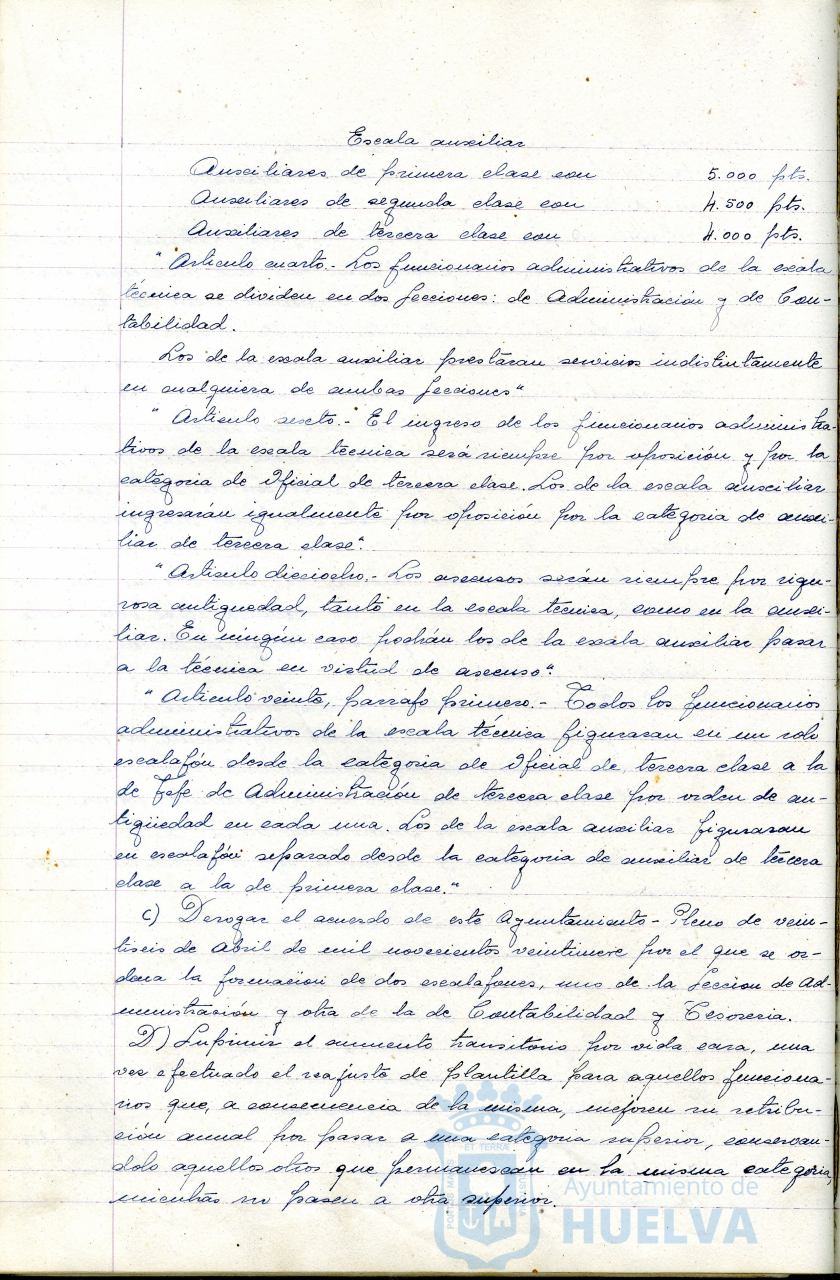 Escala auxiliar
Auxiliares de primera clase con 5.000 pts.
Auxiliares de segunda clase con 4.500 pts.
Auxiliares de tercera clase con 4.000 pts.
" Articulo cuarto.- Los funcionarios administrativos de la escala
técnica se dividen en dos Secciones: de Administración y de Con-
tabilidad.
Los de la escala auxiliar prestaran servicios indistintamente
en cualquiera de ambas Secciones"
" Articulo sexto.- El ingreso de los funcionarios administra-
tivos de la escala técnica será siempre por oposición y por la
categoria de Oficial de tercera clase. Los de la escala auxiliar
ingresarán igualmente por oposición por la categoria de auxi-
liar de tercera clase".
" Articulo dieciocho.- Los ascensos serán siempre por rigu-
rosa antiguedad, tanto en la escala técnica, como en la auxi-
liar. En ningún caso podrán los de la escala auxiliar pasar
a la técnica en virtud de ascenso".
" Articulo veinte, parrafo primero.- Todos los funcionarios
administrativos de la escala técnica figuraran en un solo
escalafón desde la categoria de Oficial de tercera clase a la
de Jefe de Administración de tercera clase por orden de an-
tigüedad en cada una. Los de la escala auxiliar figuraran
en escalafón separado desde la categoria de auxiliar de tercera
clase a la de primera clase."
C) Derogar el acuerdo de este Ayuntamiento-Pleno de vein-
tiseis de Abril de mil novecientos veintinueve por el que se or-
dena la formación de dos escalafones, uno de la Seccion de Ad-
ministración y otra de la de Contabilidad y Tesoreria.
D) Suprimir el aumento transitorio por vida cara, una
vez efectuado el reajuste de plantilla para aquellos funciona-
rios que, a consecuencia de la misma, mejoren su retribu-
ción anual por pasar a una categoria superior, conservan-
dolo aquellos otros que permanezcan en la misma categoria,
mientras no pasen a otra superior.
ET TERRA
Ayuntamiento de
HUELVA